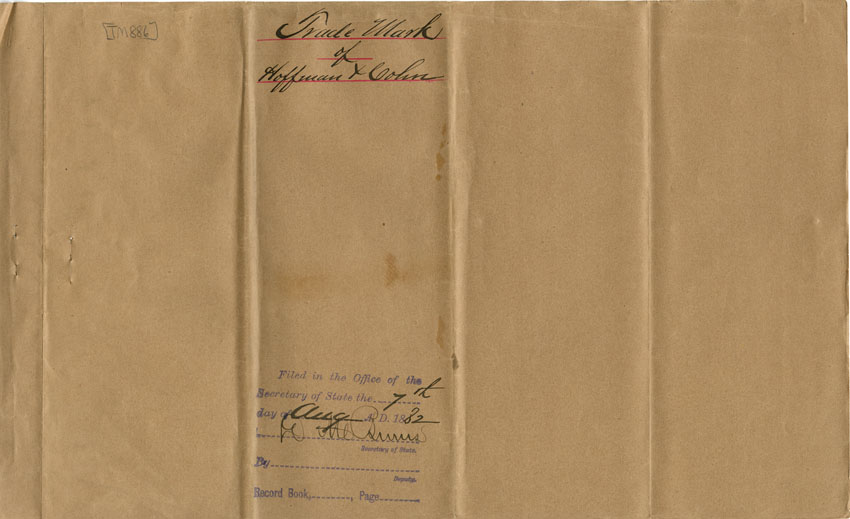 [TM886]
Trade Mark
of
Hoffman & Cohn
Filed in the Office of the
Secretary of State the 7th
day of Aug A.D. 1882
Burns
Secretary of State.
By
Deputy.
Record Book, , Page